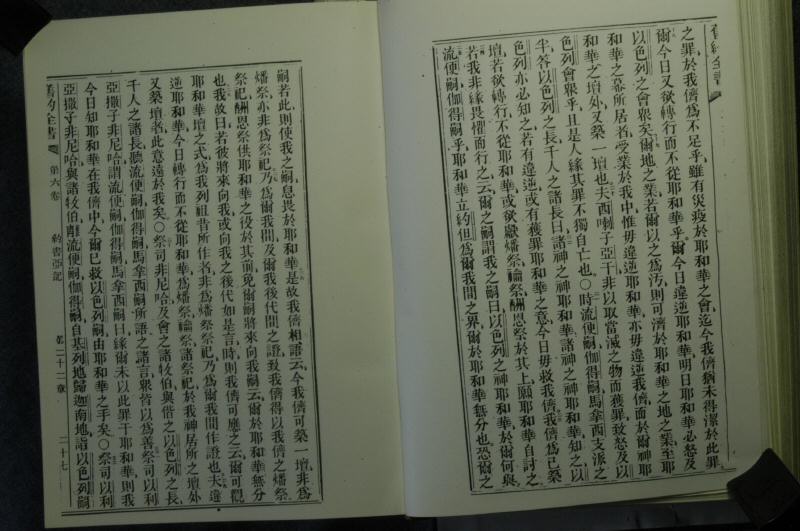 舊約全書
之罪於我儕爲不足乎雖有災疫於耶和華之會迄今我儕猶未得潔於此罪
爾今日又欲轉行而不從耶和華乎爾今日違逆耶和華明日耶和華必怒及
以色列之會眾矣爾地之業若爾以之爲污則可濟於耶和華之地之業至耶
和華之幕所居者受業於我中惟毋違逆耶和華亦毋違逆我儕而於爾神耶
和華之壇外又築一壇也夫西喇子亞干非以取當滅之物而獲罪致怒及以
色列會眾乎且是人緣其罪不獨自亡也〇時流便嗣伽得嗣馬拿西支派之
半答以色列之長千人之諸長曰諸神之神耶和華諸神之神耶和華知之以
色列亦必知之若有違逆或有獲罪耶和華之意今日毋救我儕我儕爲已築
壇若欲轉行不從耶和華或欲獻燔祭禴祭酬恩祭於其上願耶和華自討之
若我非緣畏懼而行之云爾之嗣謂我之嗣曰以色列之神耶和華於爾何與
流便嗣伽得嗣乎耶和華立約但爲爾我間之界爾於耶和華無分也恐爾之
嗣若此則使我之嗣息畏於耶和華是故我儕相語云今我儕可築一壇非爲
燔祭亦非爲祭祀乃爲爾我間及爾我後代間之證致我儕得以我儕之燔祭
祭祀酬恩祭供耶和華之役於其前免爾嗣將來向我嗣云爾於耶和華無分
也我故曰若彼將來向我或向我之後代如是言時則我儕可應之云爾可觀
耶和華壇之式爲我列祖昔所作者非爲燔祭祭祀乃爲爾我間作證也夫違
逆耶和華今日轉行而不從耶和華爲燔祭禴祭諸祭祀於我神居所之壇外
又築壇者此意遠於我矣〇祭司非尼哈及會之諸牧伯與偕之以色列之長
千人之諸長聽流便嗣伽得嗣馬拿西嗣所語之諸言眾皆以爲善祭司以利
亞撒子非尼哈謂流便嗣伽得嗣馬拿西嗣曰緣爾未以此罪干耶和華則我
今日知耶和華在我儕中今爾已救以色列嗣由耶和華之手矣〇祭司以利
亞撒子非尼哈與諸牧伯離流便嗣伽得嗣自基列地歸迦南地詣以色列嗣
舊約全書 第六卷 約書亞記 第二十二章 二十七